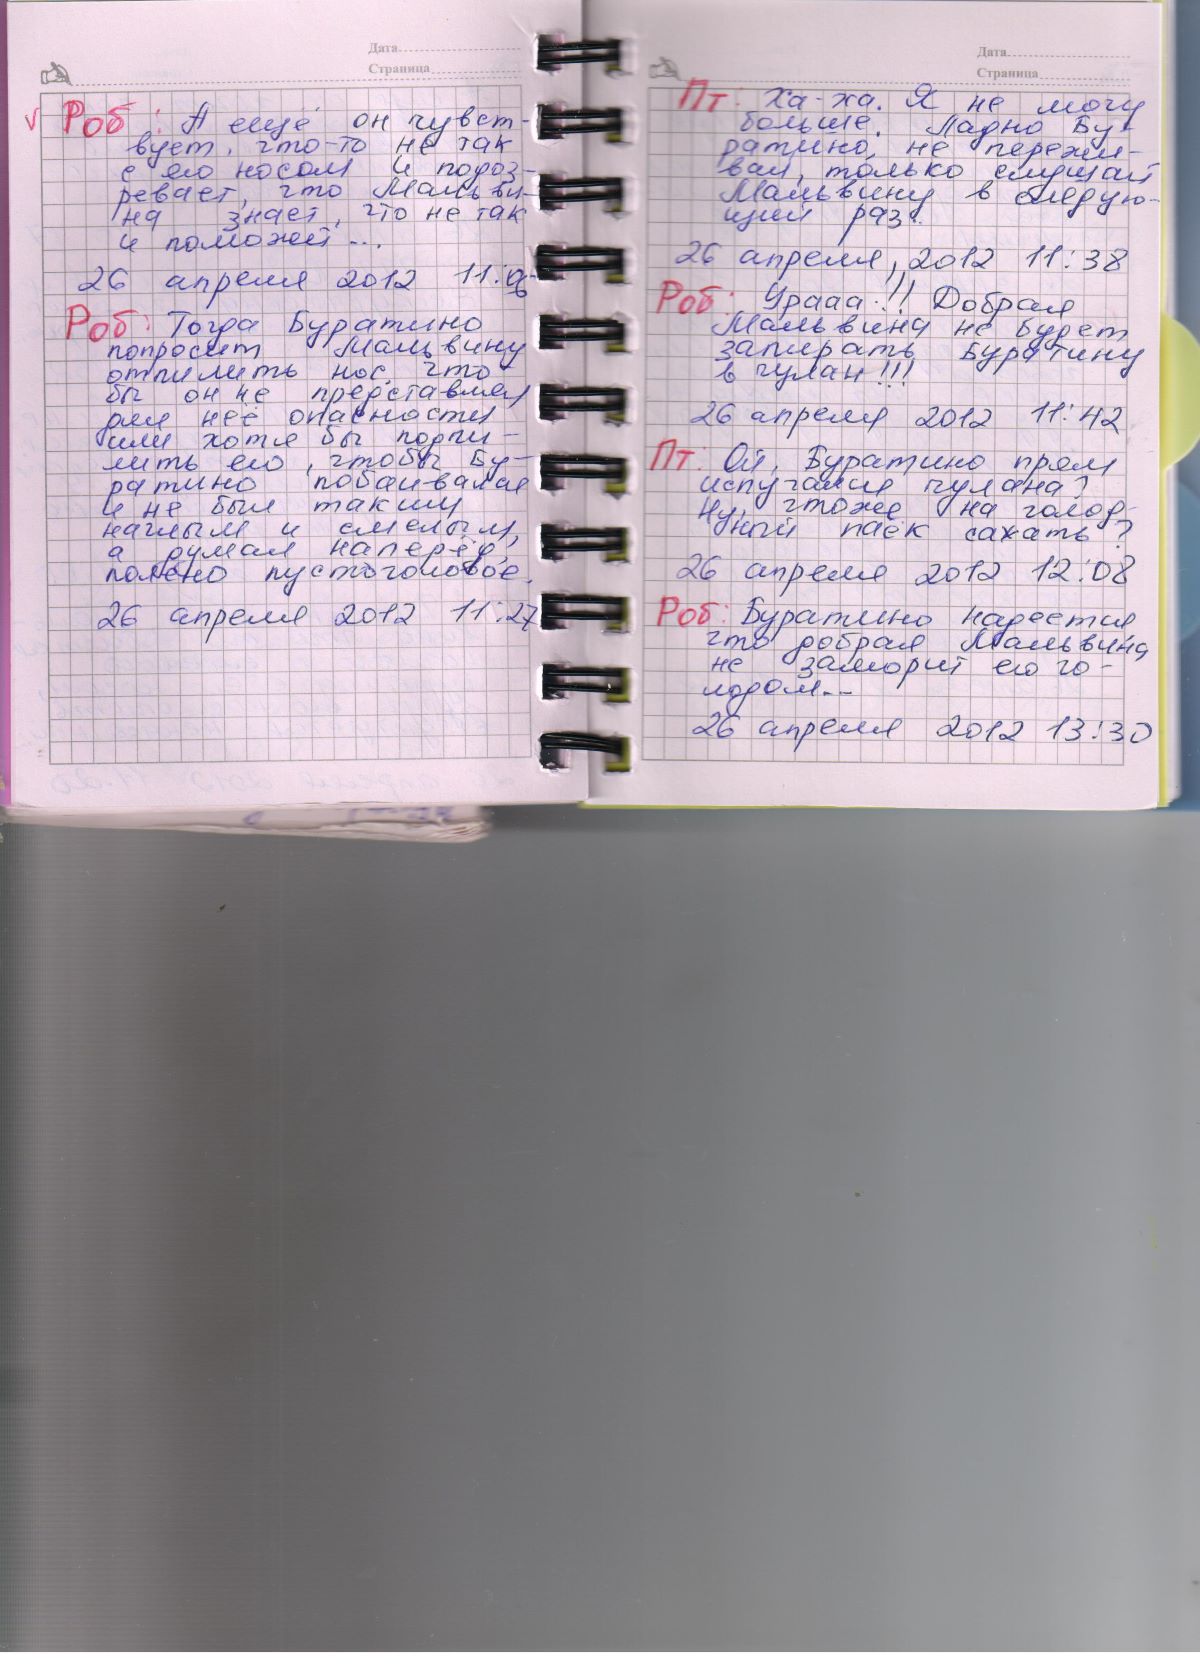 Дата
Страница
Роб: А ещё он чувст-
вует, что-то не так
с его носом и подоз-
ревает, что Мальви-
на знает, что не так
и поможет...
26 апреля 2012 11:06
Роб: Тогда Буратино
попросит Мальвину
отпилить нос, что
бы он не представлял
для неё опасности
или хотя бы подпи-
лить его, чтобы Бу-
ратино побаивался
и не был таким
наглым и смелым,
а думал наперёд,
полено пустоголовое.
26 апреля 2012 11:27
Дата
Страница
Пт: Ха-ха. Я не могу
больше. Ладно Бу-
ратино, не пережи-
вай, только слушай
Мальвину в следую-
щий раз.
26 апреля, 2012 11:38
Роб: Урааа!!! Добрая
Мальвина не будет
запирать Буратину
в чулан!!!
26 апреля 2012 11:42
Пт: Ой, Буратино прям
испугался чулана?
Ну, чтоже на голод-
ный паёк сажать?
26 апреля 2012 12:08
Роб: Буратино надеется
что добрая Мальвина
не заморит его го-
лодом...
26 апреля 2012 13:30